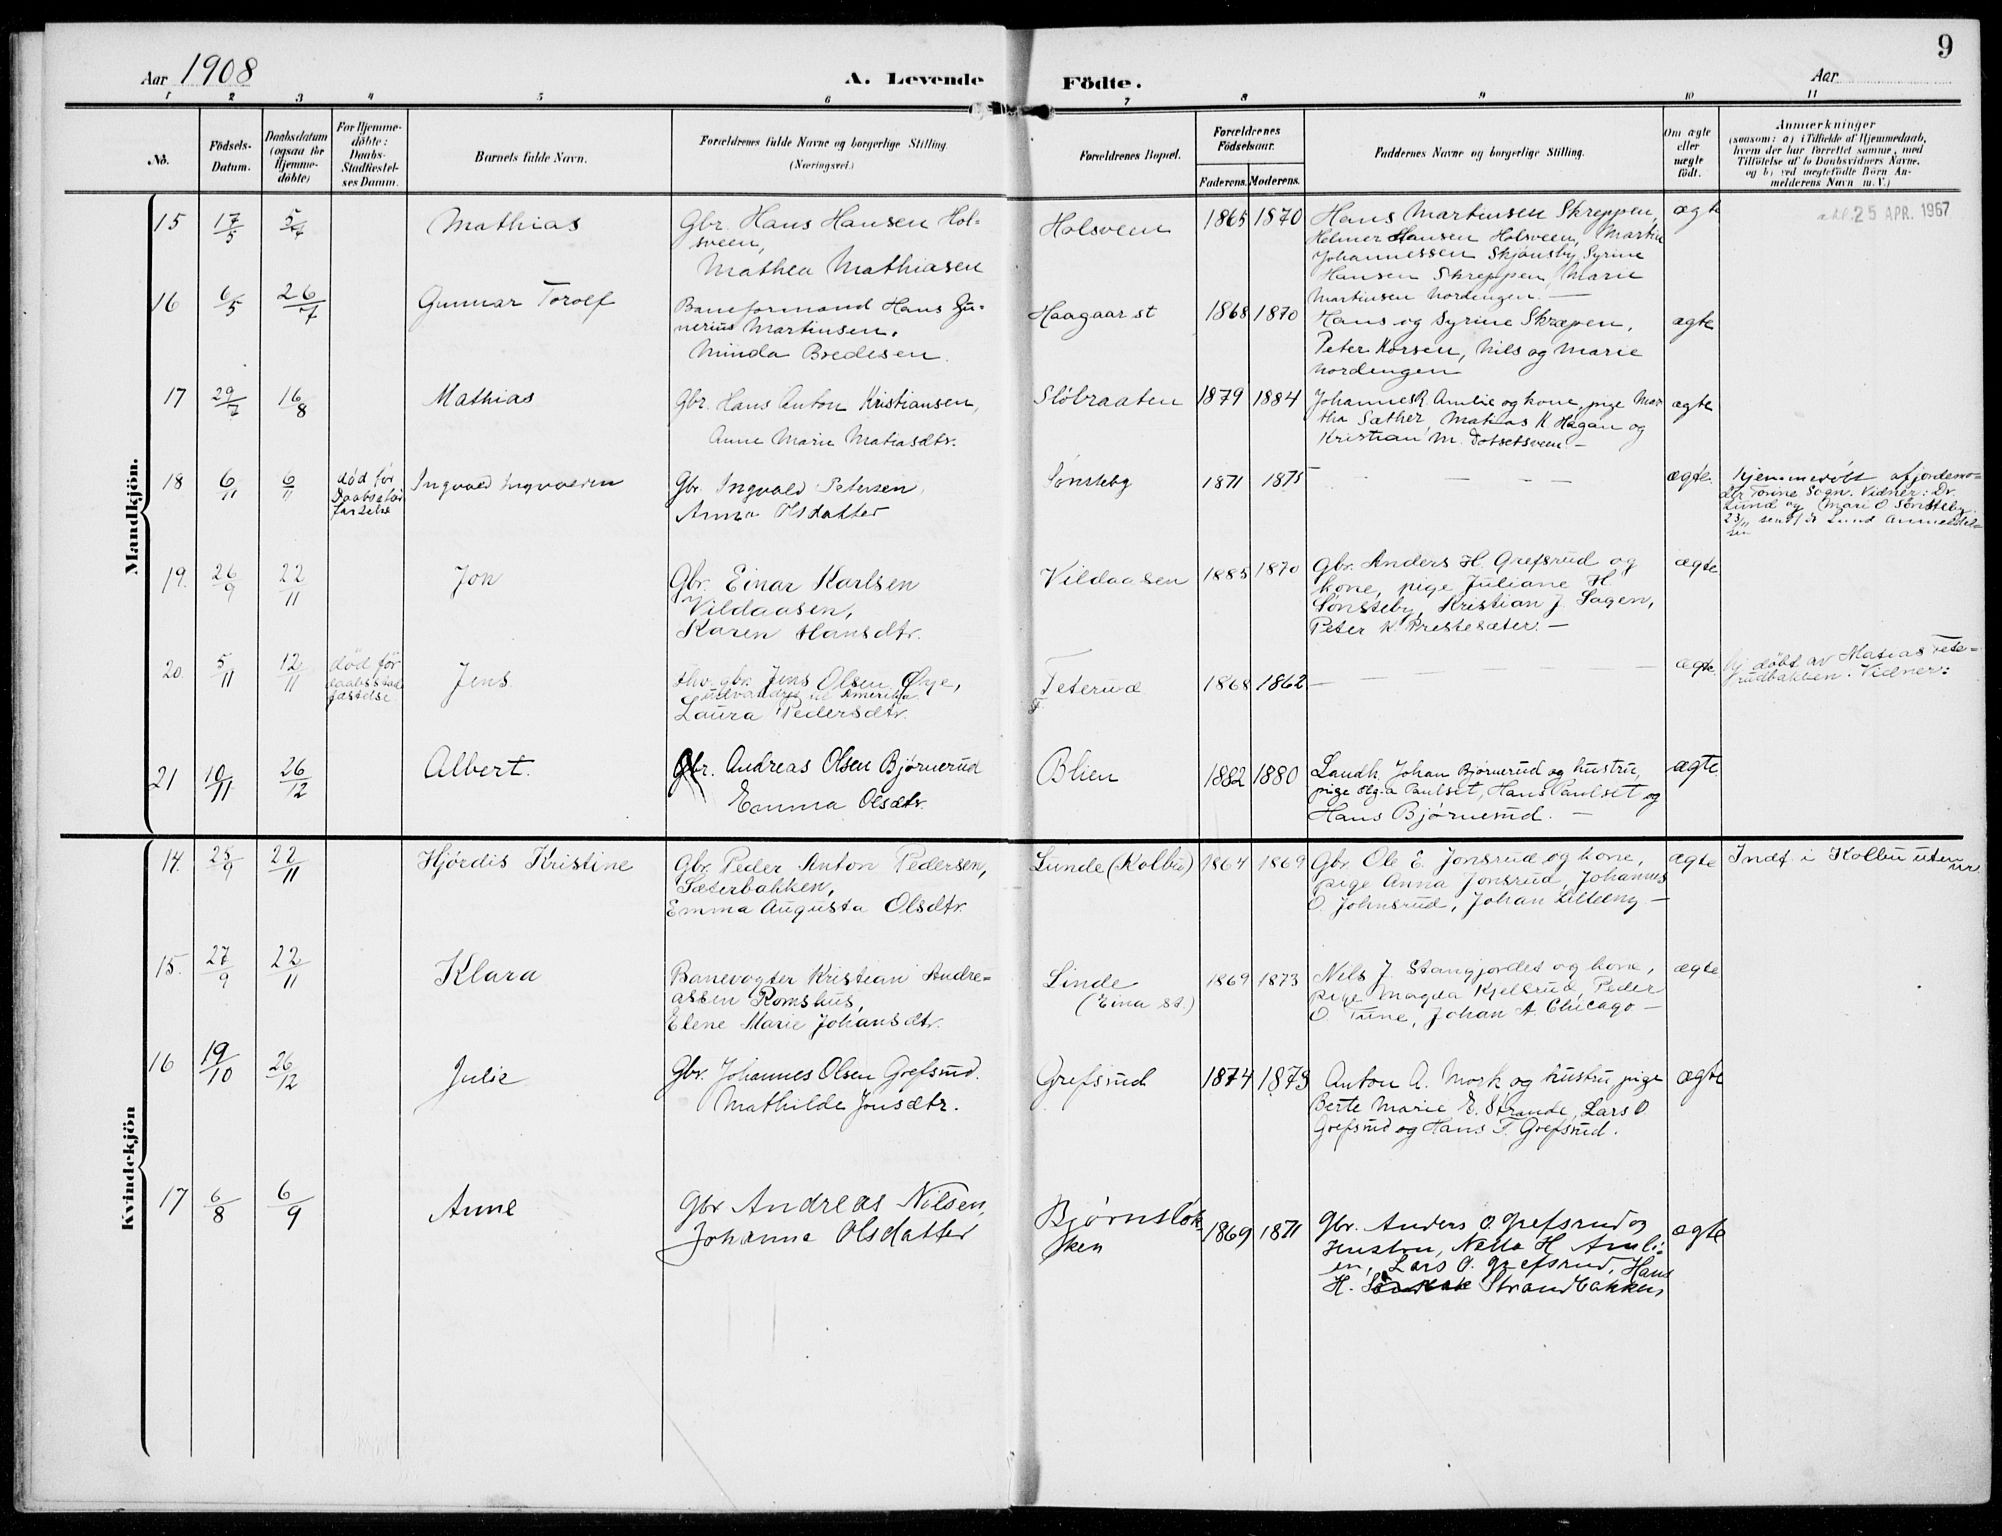 9
Aar 1908
A. Levende Födte.
Aar
1 2 3 4 5 6 7 8 9 10 11
No.
Födsels-Datum.
Daabsdatum (ogsaa for Hjemme-döbte)
For Hjemme-döbte: Daabs-Stadfæstel-ses Datum.
Barnets fulde Navn.
Forældrenes fulde Navne og borgerlige Stilling. (Næringsvei.)
Forældrenes Bopæl.
Forældrenes Födselsaar.
Faderens. Moderens.
Faddernes Navne og borgerlige Stilling.
Om ægte eller uægte födt.
Anmærkninger
(saasom: a) i Tilfælde af Hjemmedaab,
hvem der har forrettet samme, med
Tilföielse af to Daabsvidners Navne.
og b) ved uægtefödte Börn An-
melderens Navn m. V.)
Mandkjön.
15 17/5 5/7 Mathias
Gbr. Hans Hansen Hol-
sveen,
Mathea Mathiasen
Holsveen 1865 1870
Hans Martinsen Skreppen,
Helmer Hansen Holsveen, Martin
Johannessen Skjønsby, Syrine
Hansen Skreppen, Marie
Martinsen Nordengen. —
ægte
25 APR. 1967
16 6/5 26/7 Gunnar Torolf
Baneformand Hans Gu-
nerius Martinsen.
Minda Bredesen.
Haagaar st 1868 1870
Hans og Syrine Skræpen,
Peter Korsen, Nils og Marie
Nordengen
ægte
17 29/7 16/8 Mathias
Gbr. Hans Anton Kristiansen,
Anne Marie Matiasdtr.
Slöbraaten 1879 1884
Johannes R. Amlie og kone, pige Mar
tha Sæther, Matias K. Hagan og
Kristian M. Totsetsveen —
ægte
18 6/11 6/11 død før
Ingvald Ingvaldsen
Gbr. Ingvald Petersen,
Anna Olsdatter
Sønsteby 1871 1875
— — — —
ægte.
Hjemmedöbt af jordemo-
der Tonine Sogn. Vidner: Dr.
Lund og Mari O Sønsteby.
23/11 sendt Lund Anmeldel-
sen
19. 26/9 22/11 Jon
Gbr. Einar Karlsen
Vildaasen,
Karen Hansdtr.
Vildaasen 1885 1870
Gbr. Anders H. Grefsrud og
kone, pige Juliane H.
Sønsteby, Kristian J. Sagen,
Peter K. Prestesæter. —
ægte
20. 5/11 12/11 død før
daabsstad
fæstelse
Jens
Fhv. gbr. Jens Olsen Øye,
udvandret til Amerika
Laura Pedersdtr.
Teterud 1868 1862
— — — —
ægte.
Hj. döbt av Matias Tete-
rudbakken. Vidner:
21 10/11 26/12 Albert.
Gbr. Andreas Olsen Bjørnerud
Emma Olsdtr.
Blien 1882 1880
Landh. Johan Bjørnerud og hustru,
pige Olga Paulset, Hans Paulset og
Hans Bjørnerud. —
ægte
Kvindekjön
14. 28/9 22/11 Hjördis Kristine
Gbr. Peder Anton Pedersen,
Sæterbakken,
Emma Augusta Olsdtr.
Lunde (Kolbu) 1864 1869
Gbr. Ole E. Jonsrud og kone,
pige Anna Jonsrud, Johannes
O. Johnsrud, Johan Lilleeng —
ægte
Indf. i Kolbu uten
nr.
15. 27/9 22/11 Klara
Banevogter Kristian Andre-
assen Romshus,
Elene Marie Johansdtr.
Linde
(Eina st.)
1869 1873
Nils J. Stangjordet og kone,
pige Magda Kjelsrud, Peder
O. Tune, Johan A. Chicago —
ægte
16 19/10 26/12 Julie
Gbr. Johannes Olsen Grefsrud.
Mathilde Jonsdtr.
Grefsrud 1874 1873
Anton A. Mork og hustru, pige
Berte Marie E. Strande, Lars O.
Grefsrud og Hans T. Grefsrud.
ægte
17 6/8 6/9 Anne
Gbr Andreas Nilsen,
Johanne Olsdatter
Bjørnsløk-
ken
1869 1871
Gbr. Anders O. Grefsrud og
Hustru, Netta H Amli-
en, Lars O. Grefsrud, Hans
H. Strandbakken,
ægte